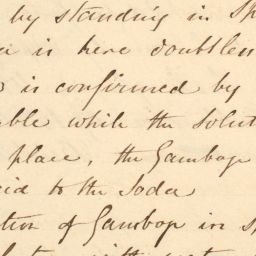 by standing in Sp
is here doubtless
is confirmed by
ble while the solut
place, the Gamboge
cid to the Soda
tion of Gamboge in s